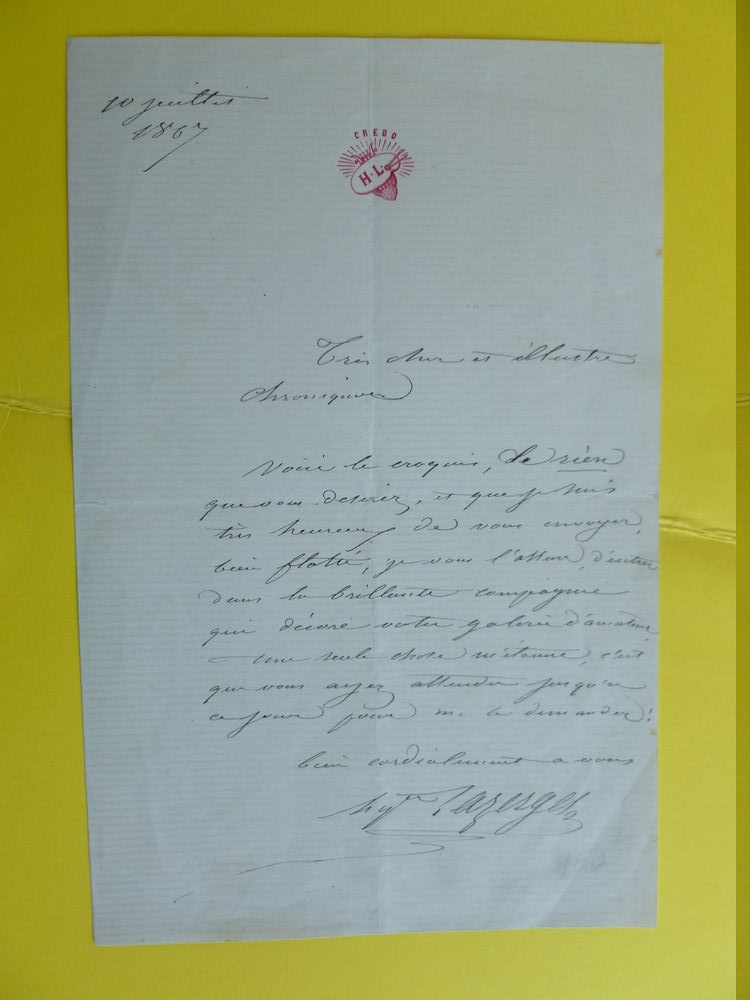 10 juillet
1867
CREDO
H. L.
Très cher et illustre
chroniqueur
Voici le croquis, de rien
que vous desirez, et que je suis
très heureux de vous envoyer,
bien flatté, je vous l'assure, d'entrer
dans la brillante compagnie
qui décore votre galerie d'amateur
une seule chose m'étonne, c'est
que vous ayez attendu jusqu'à
ce jour pour me le demander!
bien cordialement a vous
hyte Lazerges